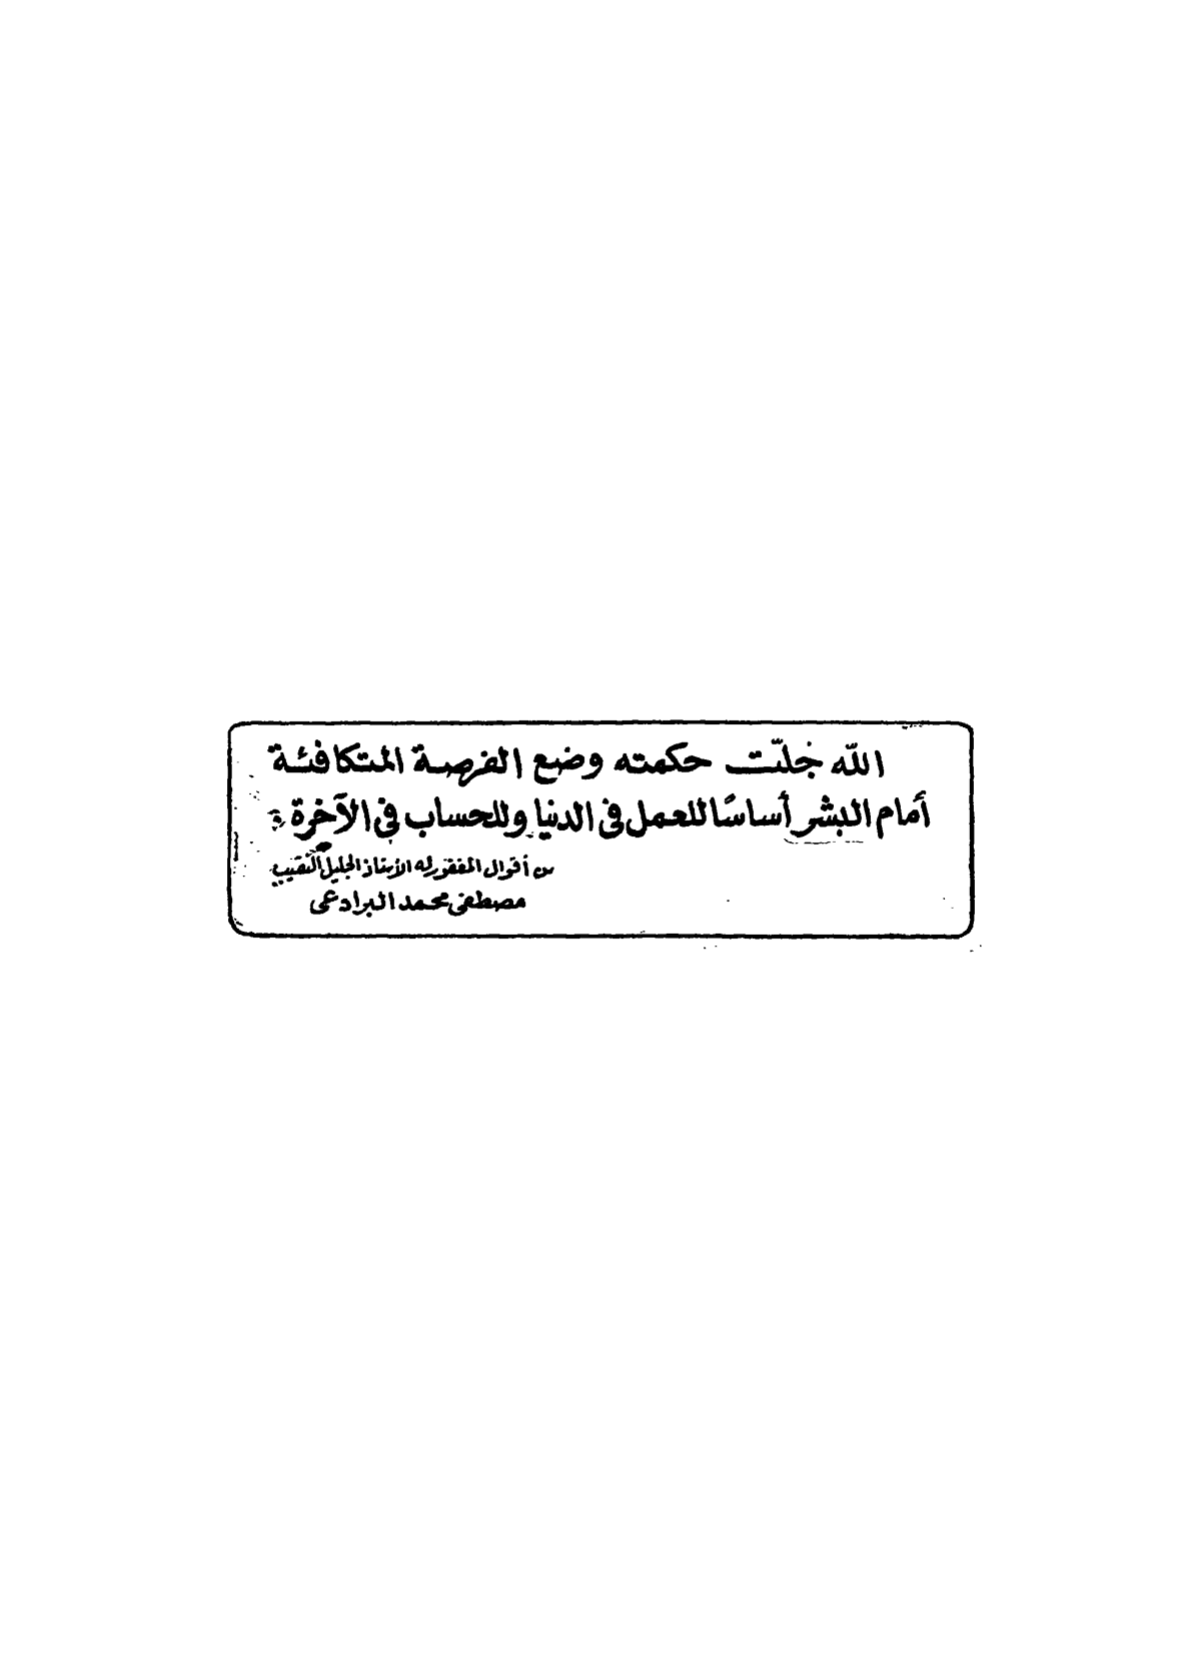 الله جلّت حكمته وضع الفرصة المتكافئة
أمام البشر أساسًا للعمل فى الدنيا وللحساب فى الآخرة
من أقوال المغفور له الأستاذ الجليل النقيب
مصطفى محمد البرادعى